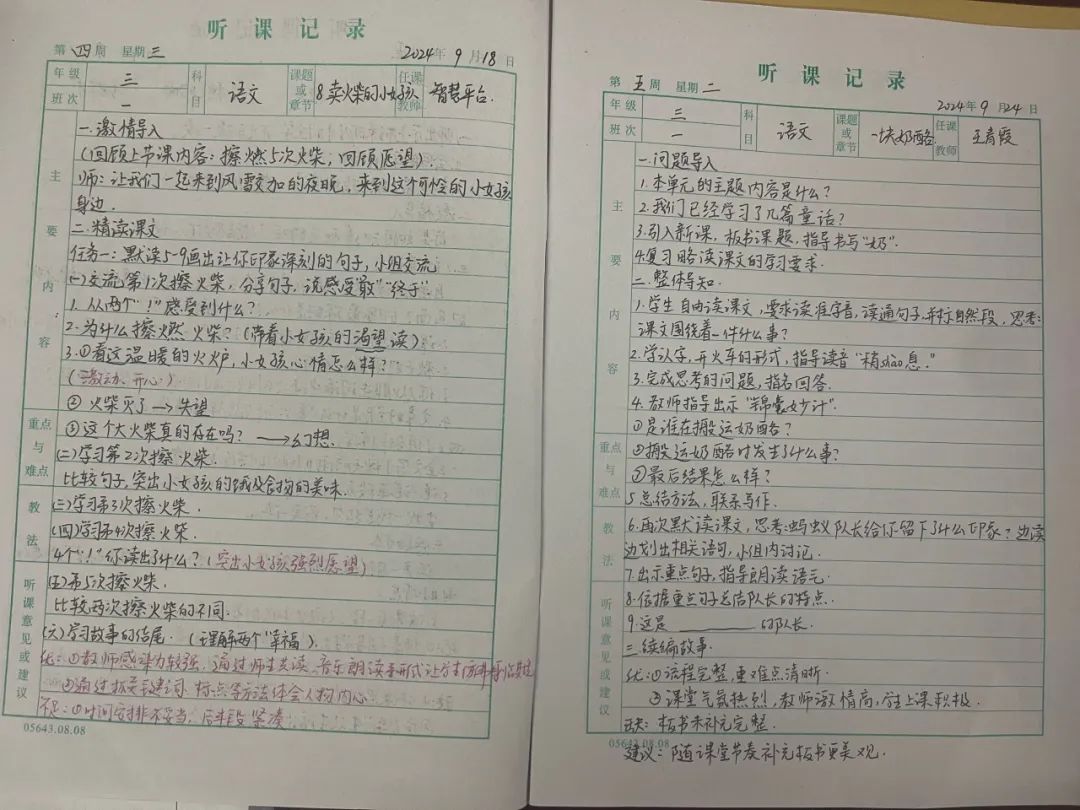 听课记录
第四周 星期三 2024年9月18日
年级 三 科目 语文 课题或章节 8 卖火柴的小女孩 任课教师 智慧平台.
班次 一
主要内容
一.激情导入
(回顾上节课内容:擦燃5次火柴,回顾愿望)
师:让我们一起来到风雪交加的夜晚,来到这个可怜的小女孩
身边.
二.精读课文
任务一:默读5-9画出让你印象深刻的句子,小组交流
(一)交流第1次擦火柴,分享句子,说感受"敢""终于".
1.从两个"!"感受到什么?
2.为什么擦燃火柴?(带着小女孩的渴望读)
3.①看这温暖的火火炉,小女孩心情怎么样?
(激动、开心)
② 火柴灭了→失望
重点与难点
③这个大火柴真的存在吗?→幻想.
(二)学习第2次擦火柴.
比较句子,突出小女孩的饿及食物的美味.
教法
(三)学习第3次擦火柴.
(四)学习第4次擦火柴.
4个"!"你读出了什么?(突出小女孩强烈愿望)
听课意见或建议
(五)第5次擦火柴.
比较两次擦火柴的不同.
(六)学习故事的结尾.(理解两个"幸福")
优:①教师感染力较强,通过师生共读、音乐朗读等形式让学生
②通过抓关键词、标点等方法体会人物内心
不足:①时间安排不妥当,后半段紧凑
05643.08.08
听课记录
第五周 星期二 2024年9月24日
年级 三 科目 语文 课题或章节 一块奶酪 任课教师 王青霞
班次 一
主要内容
一.问题导入
1.本单元的主题内容是什么?
2.我们已经学习了几篇童话?
3.引入新课,板书课题,指导书写"奶".
4.复习略读课文的学习要求.
二.整体导知.
1.学生自由读课文,要求读准字音,读通句子,标自然段,思考:
课文围绕着一件什么事?
2.学认字,开火车的形式,指导读音"稍shào息."
3.完成思考的问题,指名回答.
4.教师指导出示"锦囊妙计".
①是谁在搬运奶酪?
重点与难点
②搬运奶酪时发生了什么事?
③最后结果怎么样?
5.总结方法,联系写作.
教法
6.再次默读课文,思考:蚂蚁队长给你留下了什么印象?边读
边划出相关语句,小组内讨论.
7.出示重点句子,指导朗读语气.
听课意见或建议
8.依据重点句子总结队长的特点.
9.这是________的队长.
三.续编故事.
优:①流程完整,重难点清晰.
②课堂气氛热烈,教师激情高,学生上课积极.
缺:板书未补充完整.
05643.08.08
建议:随课堂节奏补充板书更美观.